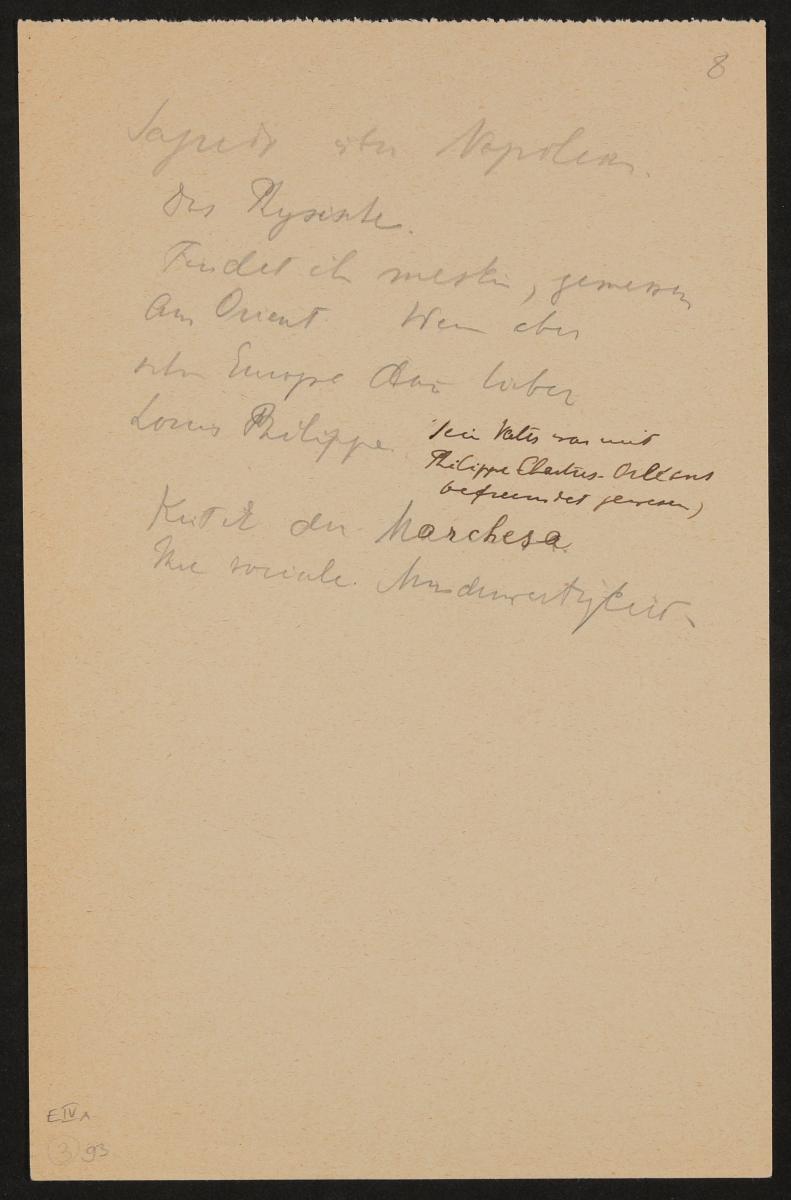 8
Sagredo über Napoleon.
Der Physische.
Findet ihn meskin, gemessen
am Orient. Wenn aber
schon Europa dann lieber
Louis Philippe.
(sein Vater war mit
Philippe Chartres-Orléans
befreundet gewesen)
Kritik der Marchesa.
Ihre sociale Minderwertigkeit.
E IV A
3 93